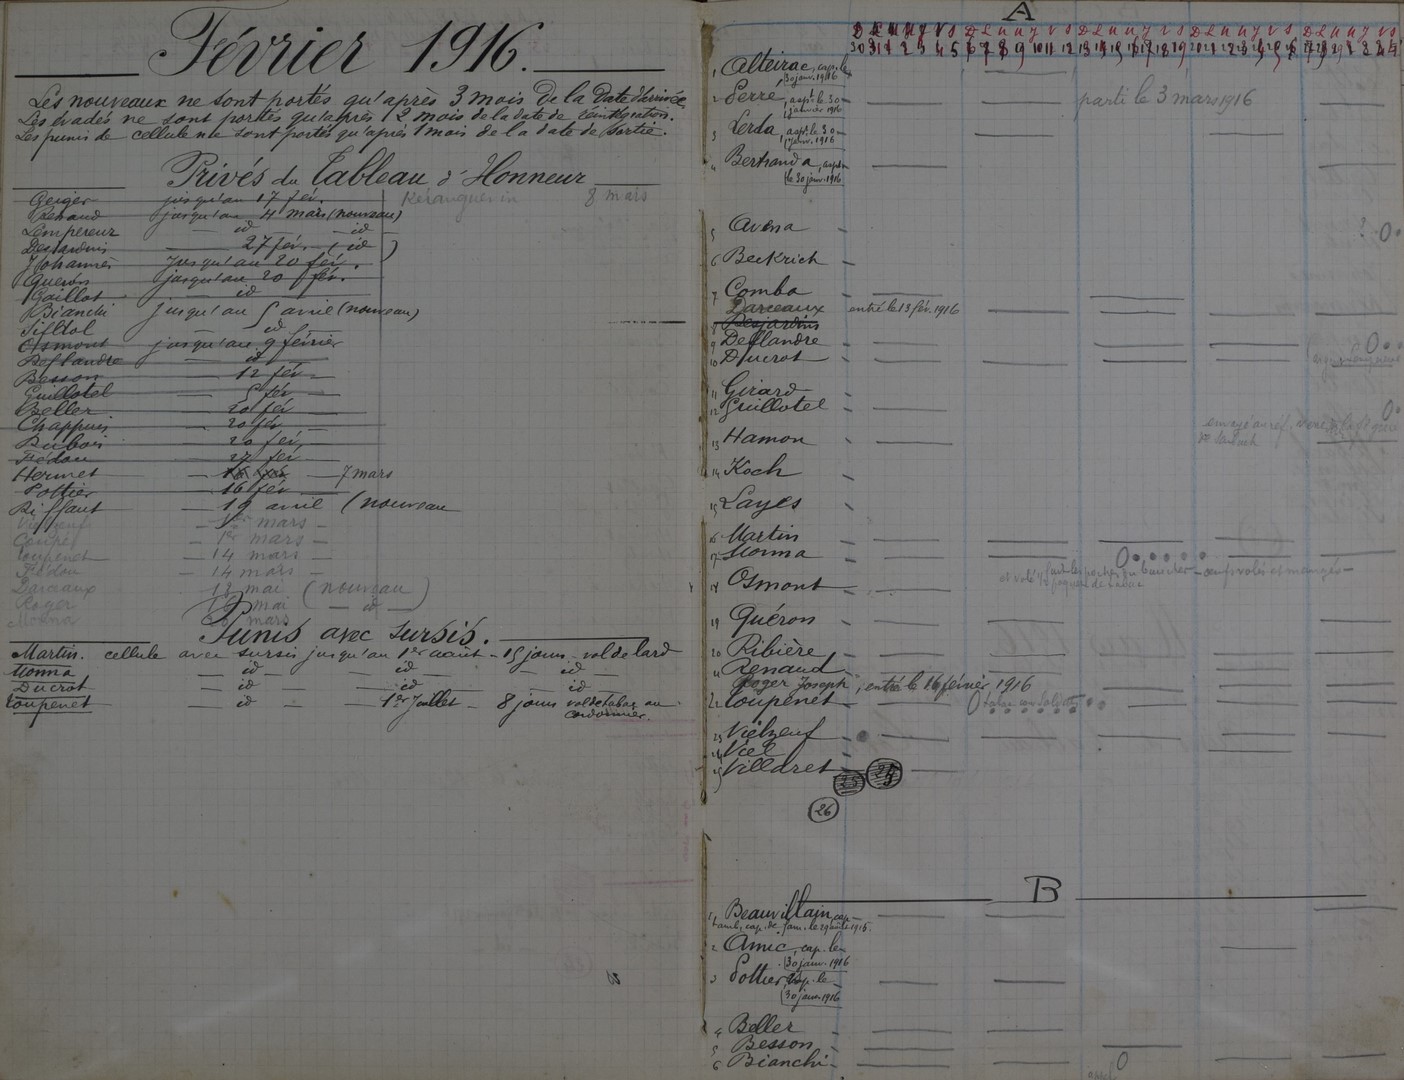 Février 1916.
Les nouveaux ne sont portés qu'après 3 mois de la Date d'arrivée.
Les évadés ne sont portés qu'après 12 mois de la date de réintégration.
Les punis de cellule ne sont portés qu'après 1 mois de la date de sortie.
Privés du Tableau d'Honneur
Geiger jusqu'au 17 fév.
Keranguenin 8 mars
Renaud jusqu'au 4 mars (nouveau)
Lempereur — id — — id —
Desjardins — 27 fév. — ( id )
Johannès jusqu'au 20 fév.
Quéron jusqu'au 20 fév.
Gaillot — id —
Bianchi jusqu'au 5 avril (nouveau)
Tilltol — id —
Osmont jusqu'au 9 février
Deflandre — id —
Besson — 12 fév —
Guillotel — 5 fév —
Beller — 20 fév —
Chappuis — 20 fév —
Dubois — 20 fév —
Fédou — 27 fév —
Hermet — 7 mars
Pottier — 16 fév —
Riffaut — 19 avril (nouveau
Vielzeuf — 1er mars —
Coupé — 1er mars —
Loupenet — 14 mars —
Fédou — 14 mars —
Darceaux — 13 mai (nouveau)
Roger — 16 mai ( — id — )
Monna mars
Punis avec sursis.
Martin. cellule avec sursis jusqu'au 1er août — 15 jours — vol de lard
Monna — id — — id — — id —
Ducrot — id — — id — — id —
Loupenet — id — — 1er Juillet — 8 jours vol de tabac au
cordonnier.
A
D L M M J V S D L M M J V S D L M M J V S D L M M J V S D L M M J V S
30 31 1 2 3 4 5 6 7 8 9 10 11 12 13 14 15 16 17 18 19 20 21 22 23 24 25 26 27 28 29 1 2 3 4
1 Alteirac, cap. le
30 janv. 1916
2 Serre, aspt le 30
janvier 1916
parti le 3 mars 1916
3 Lerda, aspt le 30
janv. 1916
4 Bertrand a, aspt
le 30 janv. 1916
5 Avena
6 Beckrich
7 Comba
Darceaux entré le 13 fév. 1916
8 Desjardins
9 Deflandre
10 Ducrot
11 Girard
12 Guillotel
13 Hamon
14 Koch
15 Layes
16 Martin
17 Monna
18 Osmont
19 Quéron
20 Ribière
21 Renaud
Roger Joseph, entré le 16 février 1916
22 Loupenet
23 Vielzeuf
24 Viel
25 Villaret
25
26
B
1 Beauvillain, cap.
tamb, cap. de fan. le 29 août 1915.
2 Amic, cap. le
30 janv. 1916
3 Pottier cap. le
30 janv. 1916
4 Beller
5 Besson
6 Bianchi